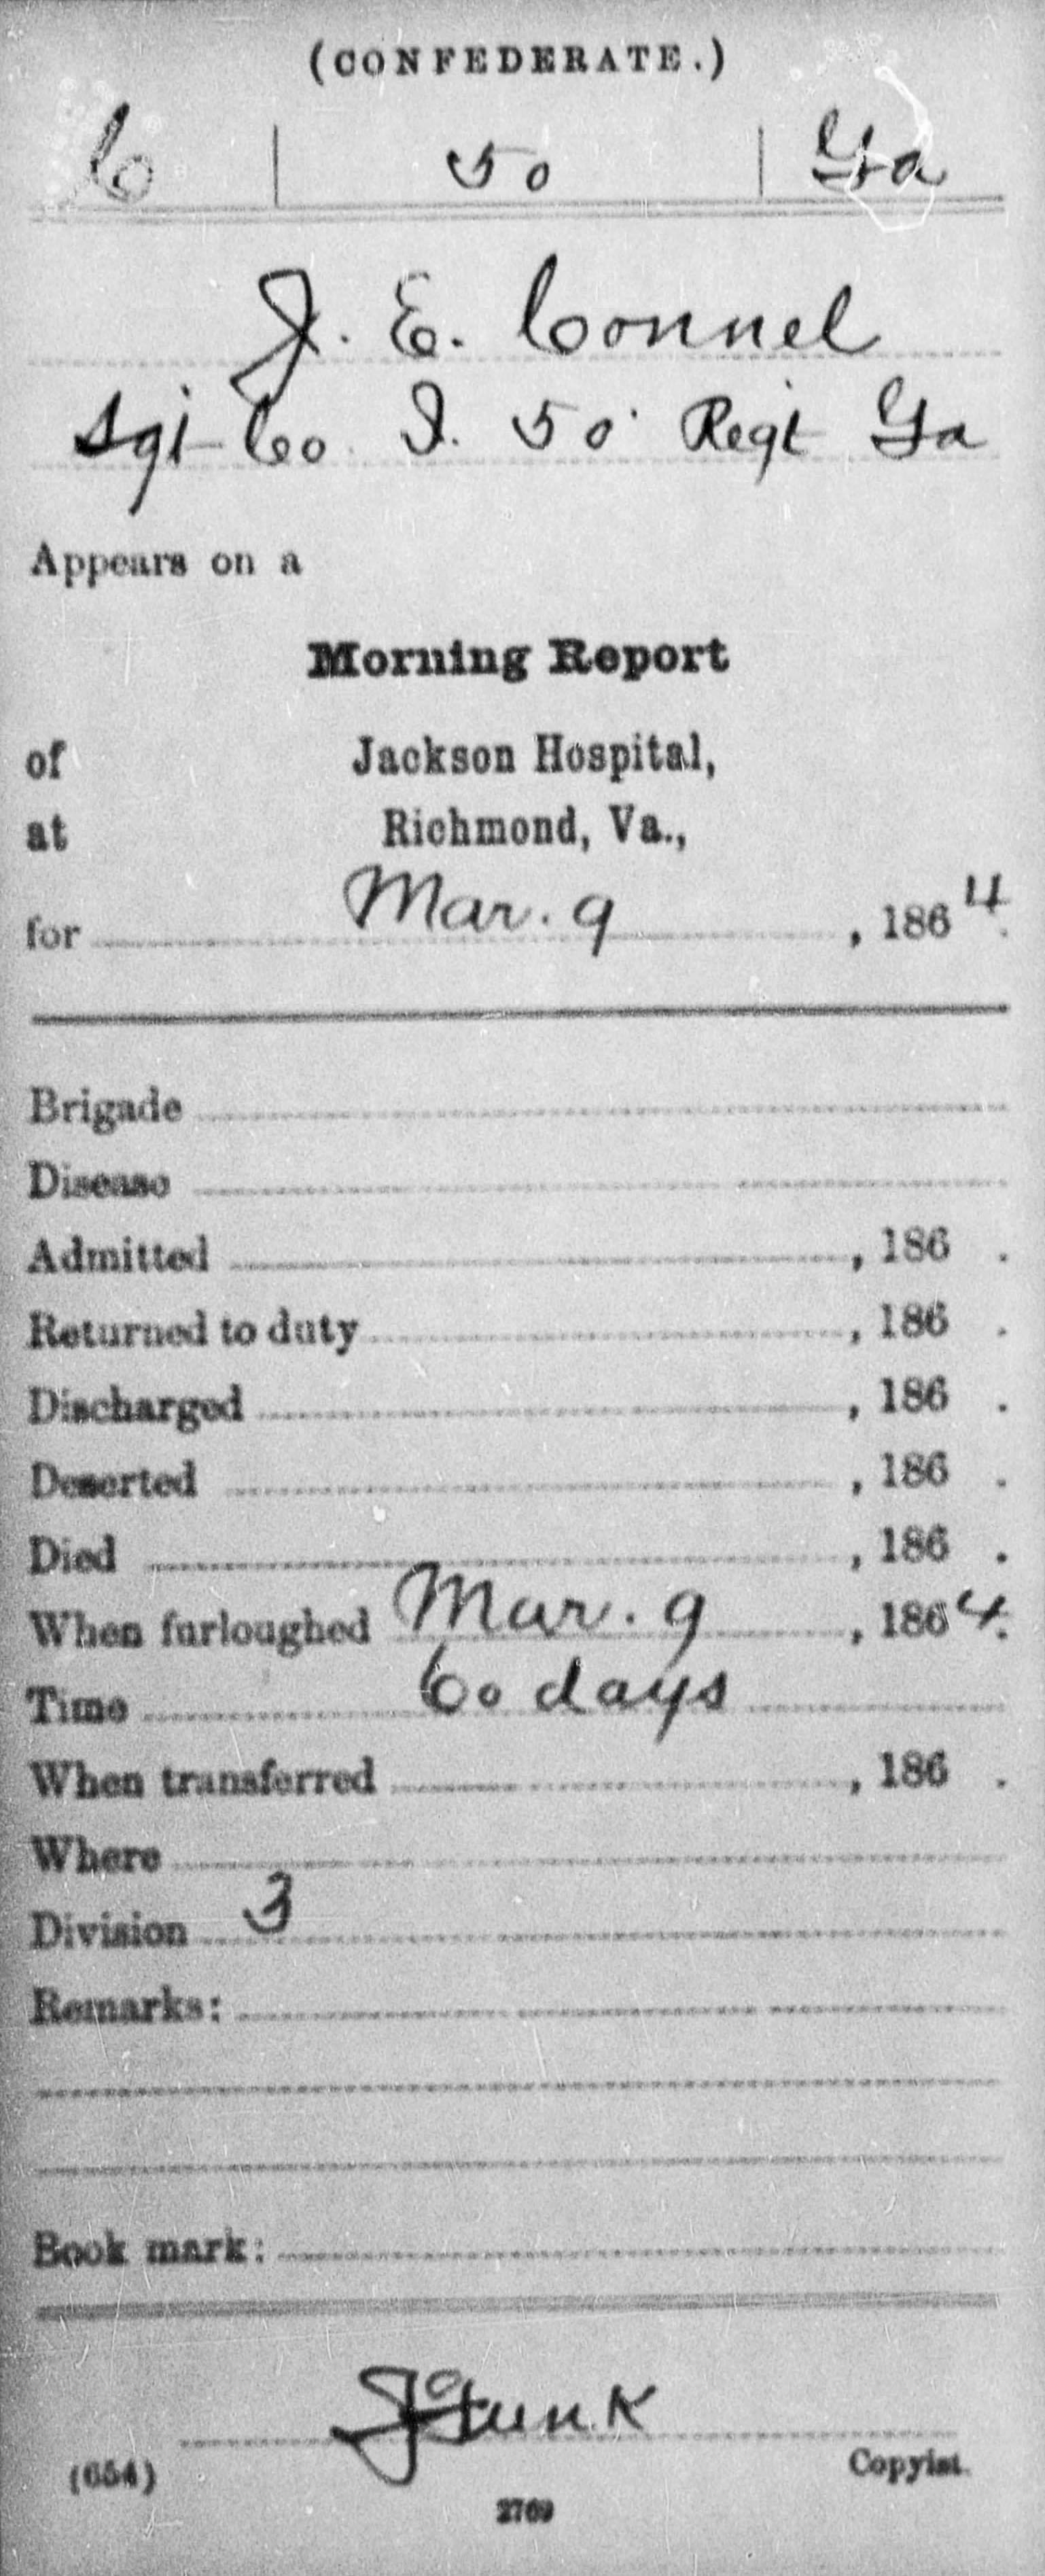 (CONFEDERATE.)
C | 50 | Ga
J. E. Connel
Sgt Co I. 50 Regt Ga
Appears on a
Morning Report
of Jackson Hospital,
at Richmond, Va.,
for Mar. 9, 1864.
Brigade
Disease
Admitted , 186 .
Returned to duty , 186 .
Discharged , 186 .
Deserted , 186 .
Died , 186 .
When furloughed Mar. 9, 1864.
Time 60 days
When transferred , 186 .
Where
Division 3
Remarks:
Book mark:
J Funk
(654) Copyist.
2769